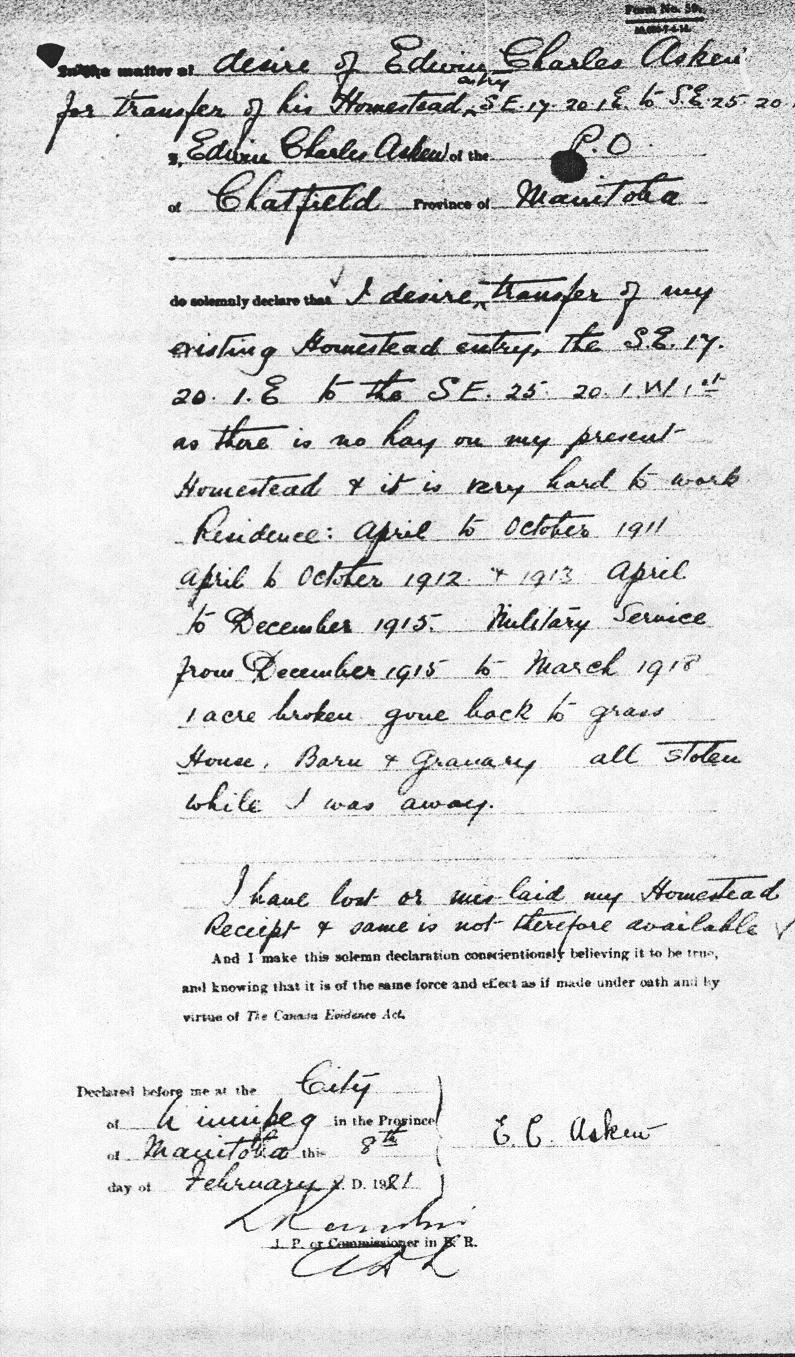 Form No.
In the matter of desire of Edwin Charles Askew
entry
for transfer of his Homestead, S.E. 17. 20 1.E to S.E. 25 20
I, Edwin Charles Askew of the P.O.
of Chatfield Province of Manitoba
do solemnly declare that I desire transfer of my
existing Homestead entry, the S.E. 17.
20. 1. E to the S E. 25. 20. 1. W 1st
as there is no hay on my present
Homestead & it is very hard to work
Residence: April to October 1911
April to October 1912 & 1913 April
to December 1915. Military Service
from December 1915 to March 1918
1 acre broken gone back to grass
House, Barn & Granary all stolen
while I was away.
I have lost or mis-laid my Homestead
Receipt & same is not therefore available
And I make this solemn declaration conscientiously believing it to be true,
and knowing that it is of the same force and effect as if made under oath and by
virtue of The Canada Evidence Act.
Declared before me at the City
of Winnipeg in the Province
of Manitoba this 8th
day of February A. D. 1921
E. C. Askew
J. P. or Commissioner in B. R.